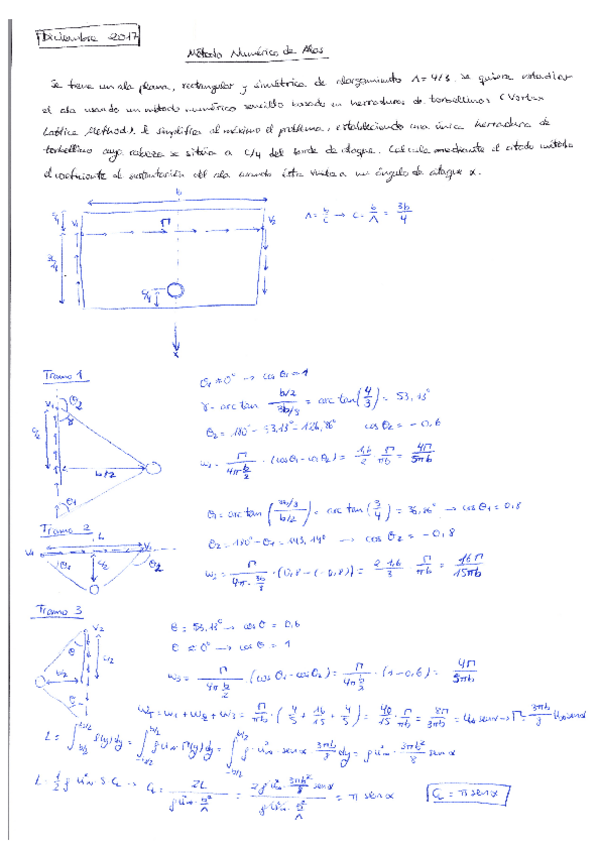 Diciembre 2017
Método Numérico de Alas
Se tiene un ala plana, rectangular y simétrica de alargamiento Λ = 4/3. Se quiere estudiar
el ala usando un método numérico sencillo basado en herraduras de torbellinos (Vortex
Lattice Method). Se simplifica al máximo el problema, estableciendo una única herradura de
torbellino cuya cabeza se sitúa a c/4 del borde de ataque. Calcula mediante el citado método
el coeficiente de sustentación del ala cuando ésta vuela a un ángulo de ataque α.
b
c/4 V1 Γ V2
Λ = b/c → c = b/Λ = 3b/4
3c/4
c/4
x
Tramo 1
θ1 ≈ 0° → cos θ1 = 1
V1 θ2
γ = arc tan (b/2)/(3b/8) = arc tan (4/3) = 53,13°
γ
θ2 = 180° - 53,13° = 126,86° cos θ2 = -0,6
c/2
b/2
w1 = Γ/(4π b/2) · (cos θ1 - cos θ2) = 1,6/2 Γ/πb = 4Γ/5πb
θ1
θ1 = arc tan ((3b/8)/(b/2)) = arc tan (3/4) = 36,86° → cos θ1 = 0,8
Tramo 2
V1 b V2
θ2 = 180° - θ1 = 143,14° → cos θ2 = -0,8
θ1 c/2 θ2
w2 = Γ/(4π · 3b/8) · (0,8 - (-0,8)) = 2·1,6/3 Γ/πb = 16Γ/15πb
Tramo 3
V2
θ = 53,13° → cos θ = 0,6
θ c/2
θ ≈ 0° → cos θ = 1
b/2
w3 = Γ/(4π b/2) (cos θ1 - cos θ2) = Γ/(4π b/2) · (1 - 0,6) = 4Γ/5πb
θ
wT = w1 + w2 + w3 = Γ/πb · (4/5 + 16/15 + 4/5) = 40/15 · Γ/πb = 8Γ/3πb = U∞ sen α → Γ = 3πb/8 U∞ sen α
L = ∫ l(y) dy = ∫ ρ U∞ Γ(y) dy = ∫ ρ · U∞² · sen α 3πb/8 dy = ρ U∞² · 3πb²/8 sen α
L = 1/2 ρ U∞² S CL → CL = 2L/(ρ U∞² · b²/Λ) = (2 ρ U∞² · 3πb²/8 sen α)/(ρ U∞² · b²/Λ) = π sen α
CL = π sen α